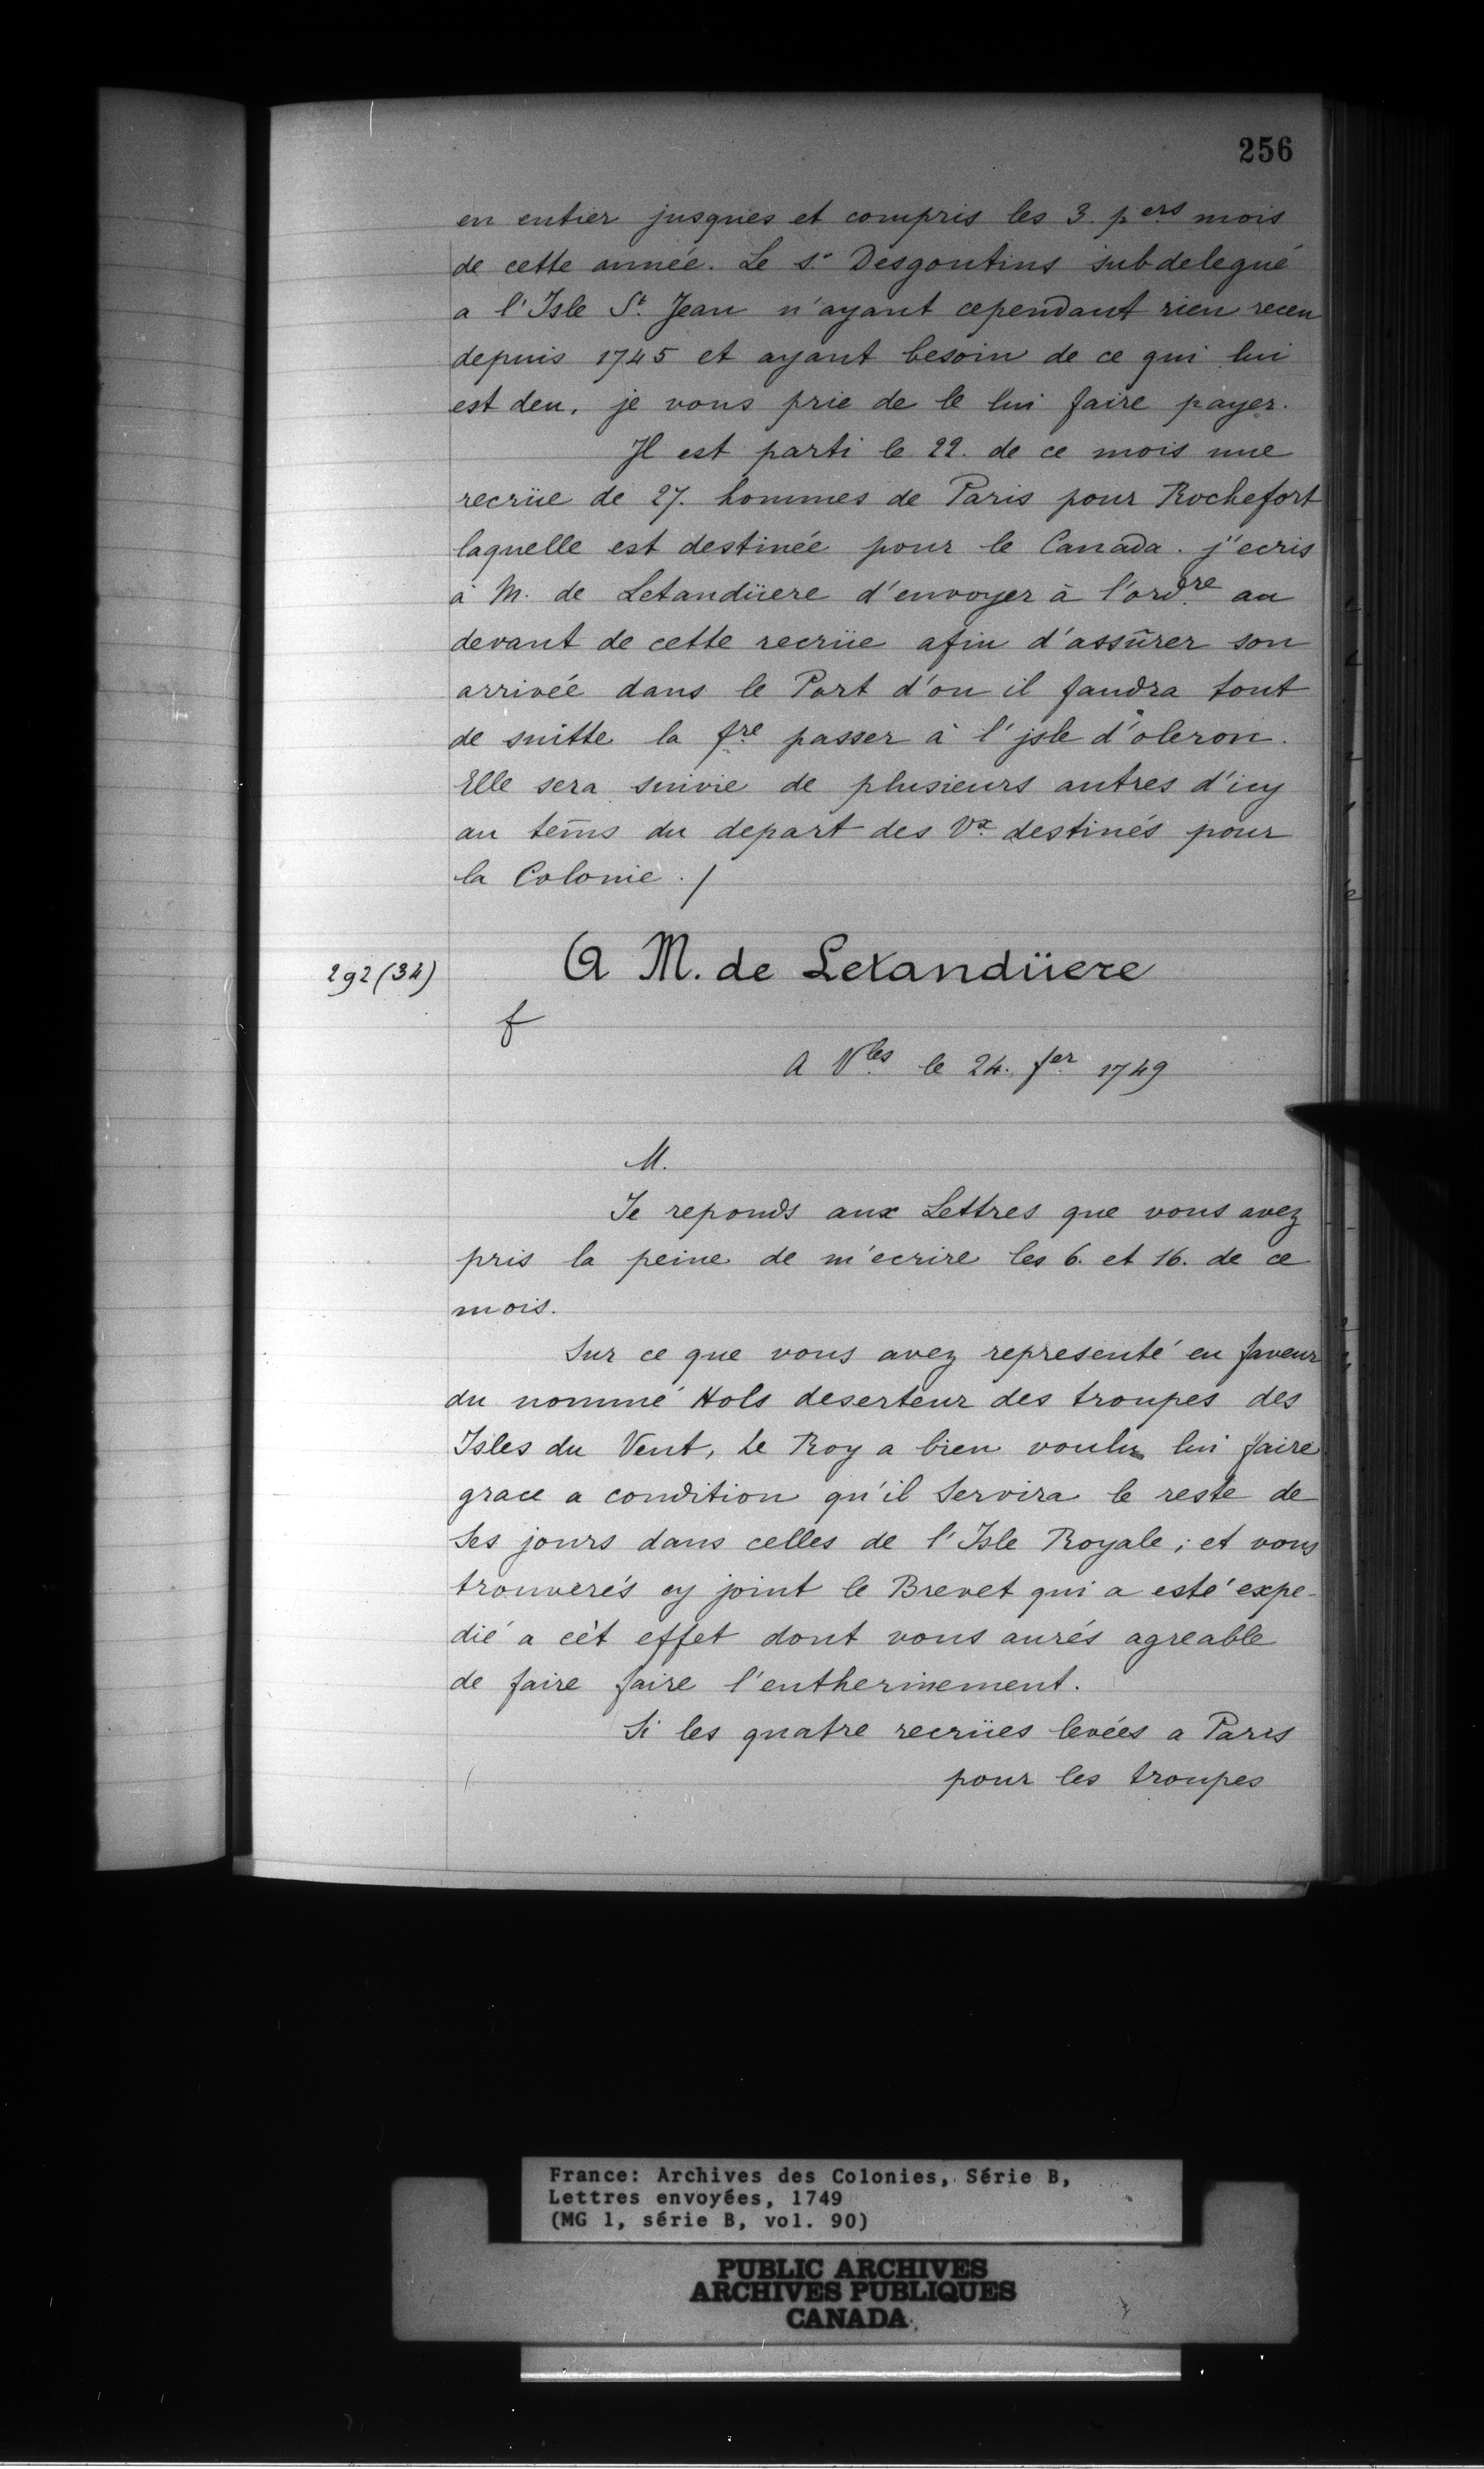 256
en entier jusques et compris les 3. p.ers mois
de cette année. Le s.r Desgoutins subdelegué
a l'Isle S.t Jean n'ayant cependant rien receu
depuis 1745 et ayant besoin de ce qui lui
est deu, je vous prie de le lui faire payer.
Il est parti le 22. de ce mois une
recrüe de 27. hommes de Paris pour Rochefort
laquelle est destinée pour le Canada. j'ecris
à M. de Letandüere d'envoyer à l'ord.re au
devant de cette recrüe afin d'assûrer son
arrivée dans le Port d'ou il faudra tout
de suitte la f.re passer à l'jsle d'oleron.
Elle sera suivie de plusieurs autres d'icy
au tem̃s du depart des V.x destinés pour
la Colonie ./
292 (34)
A M. de Letandüere
f
A V.les le 24. f.er 1749
M.
Je reponds aux Lettres que vous avez
pris la peine de m'ecrire les 6. et 16. de ce
mois.
Sur ce que vous avez representé en faveur
du nommé Hols deserteur des troupes des
Isles du Vent, Le Roy a bien voulu lui faire
grace a condition qu'il Servira le reste de
Ses jours dans celles de l'Isle Royale; et vous
trouverés cy joint le Brevet qui a esté expe-
dié a cèt effet dont vous aurés agreable
de faire faire l'entherinement.
Si les quatre recrües levées a Paris
pour les troupes
France: Archives des Colonies, Série B,
Lettres envoyées, 1749
(MG 1, série B, vol. 90)
PUBLIC ARCHIVES
ARCHIVES PUBLIQUES
CANADA